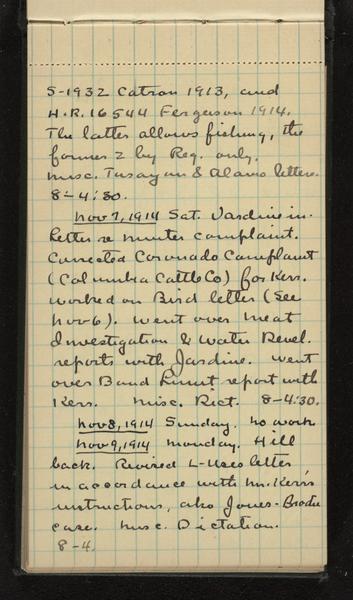 S-1932 Catron 1913, and
H.R. 16544 Ferguson 1914.
The latter allows fishing, the
former 2 by Reg. only.
Misc. Tusayan & Alamo letters.
8-4:30.
Nov 7, 1914 Sat. Jardine in.
Letter re Munter complaint.
Corrected Coronado Complaint
(Columbia Cattle Co) for Kerr.
Worked on Bird letter (See
Nov 6). Went over Meat
Investigation & Water Devel.
reports with Jardine. Went
over Band Limit report with
Kerr. Misc. Dict. 8-4:30.
Nov 8, 1914 Sunday. No work.
Nov 9, 1914 Monday. Hill
back. Revised L-Uses letter
in accordance with Mr. Kerr's
instructions, also Jones-
case. Misc. Dictation.
8-4.